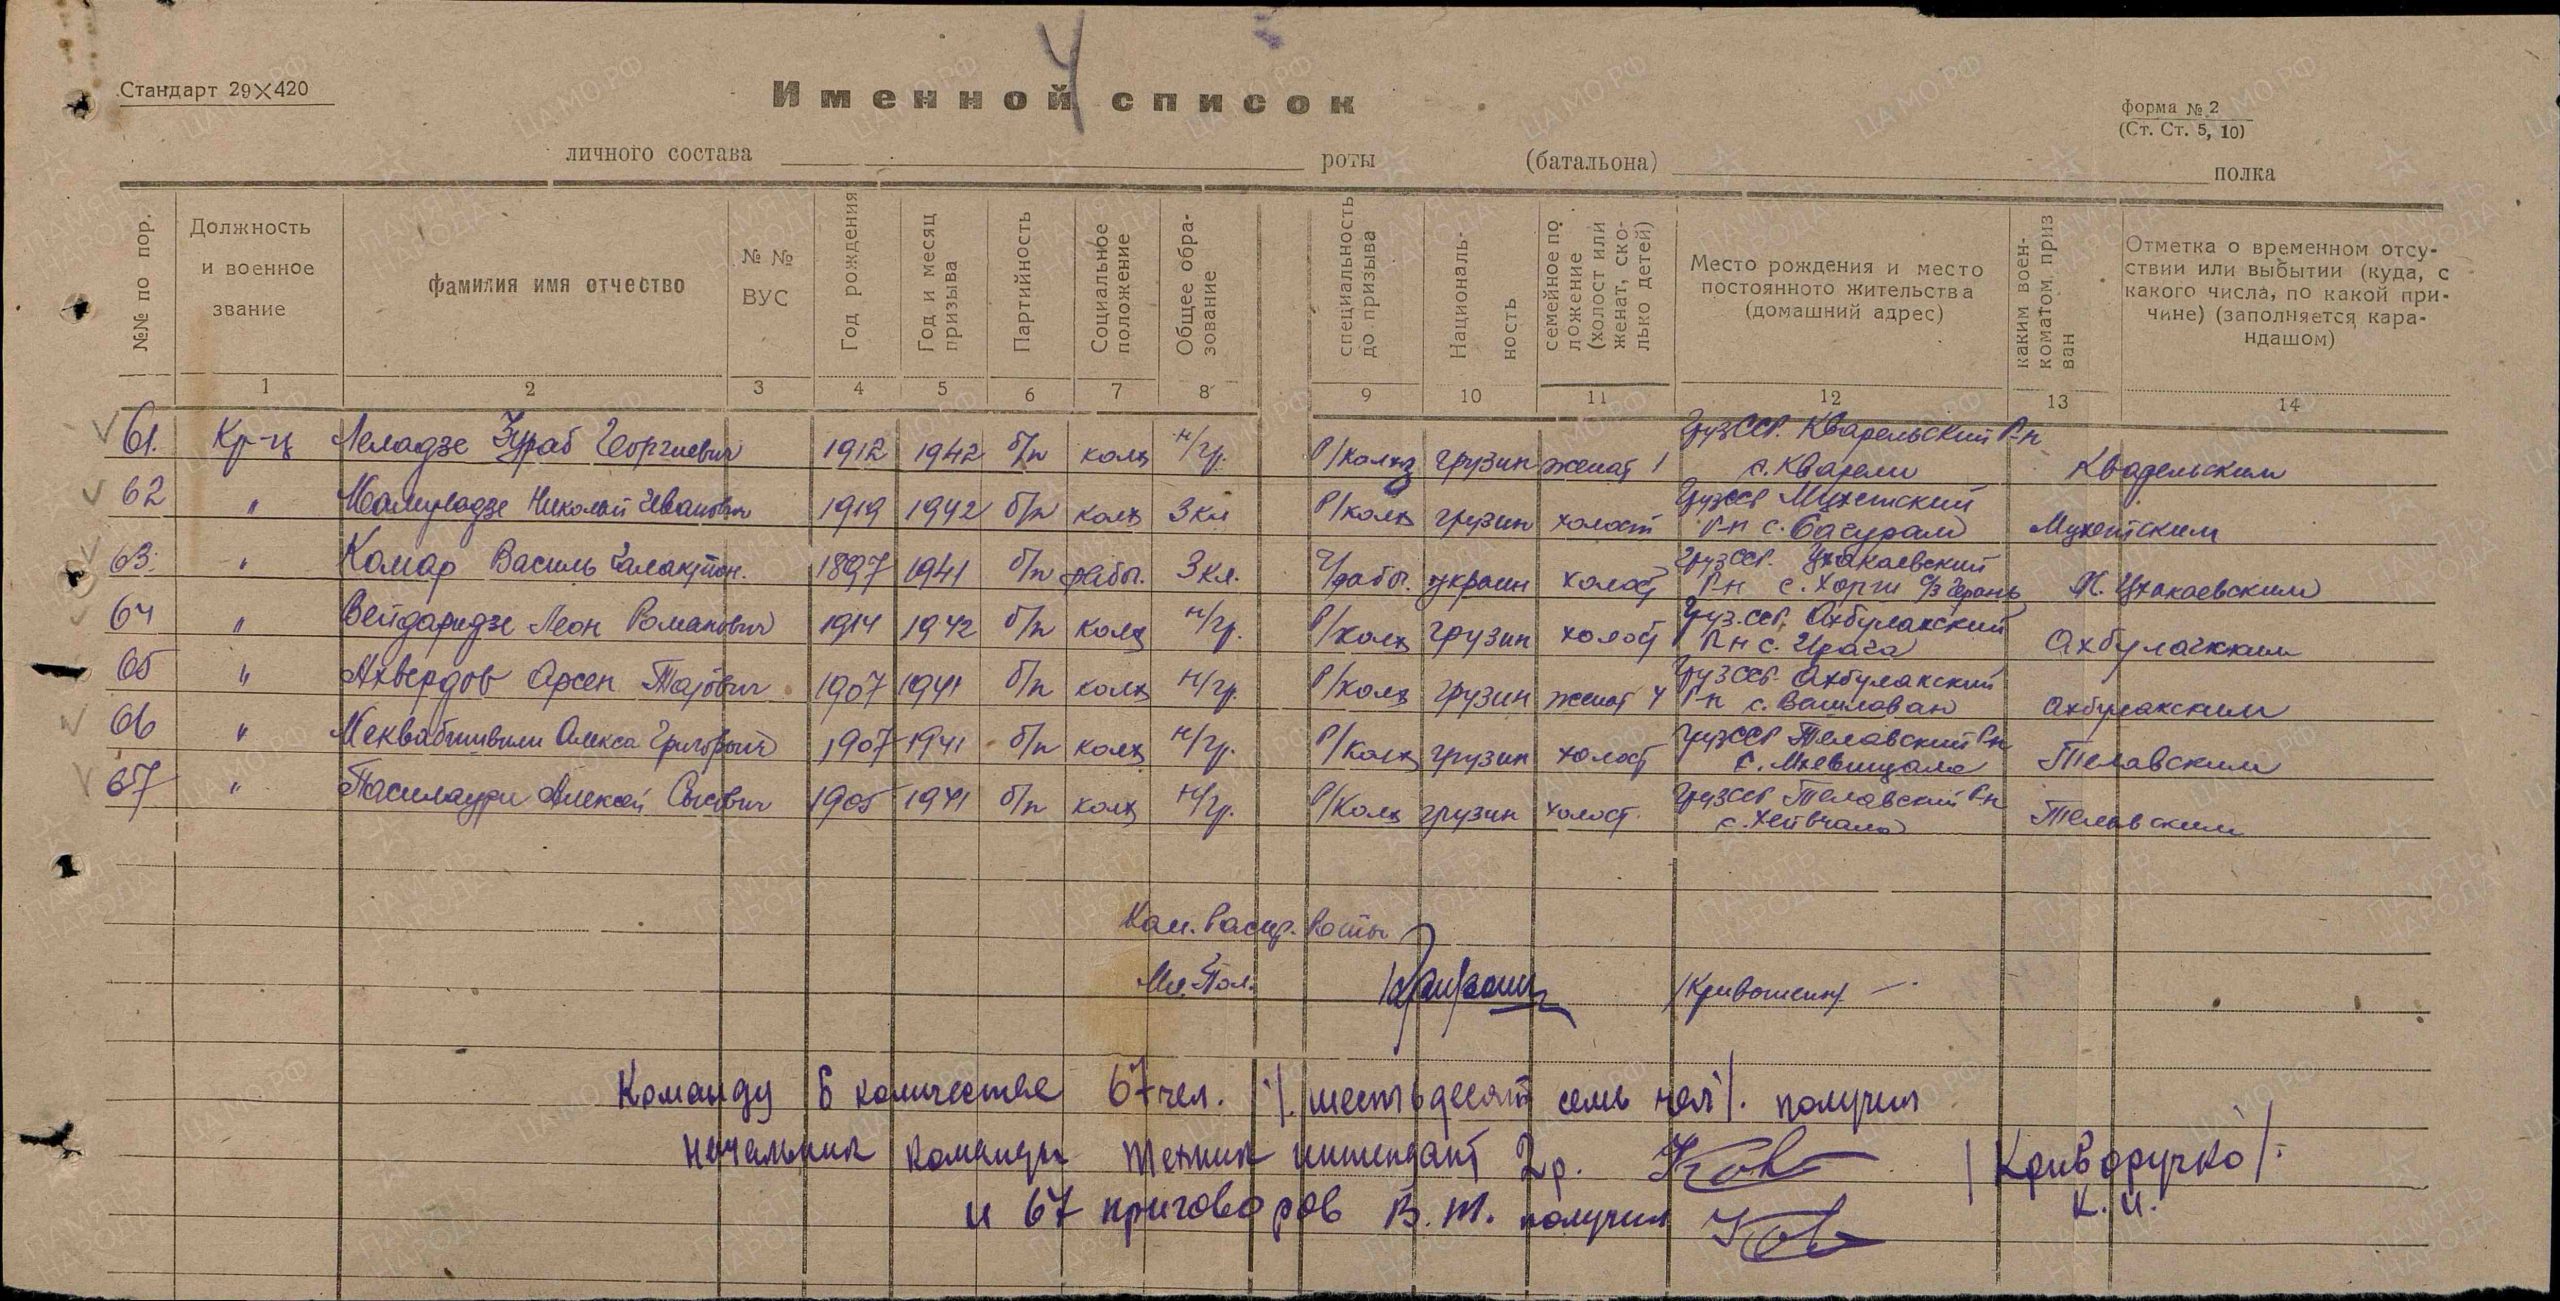 Стандарт 29×420
Именной список
форма № 2
(Ст. Ст. 5, 10)
личного состава роты (батальона) полка
№№ по пор.
Должность и военное звание
фамилия имя отчество
№ № ВУС
Год рождения
Год и месяц призыва
Партийность
Социальное положение
Общее обра-зование
специальность до призыва
Националь-ность
семейное по ложение (холост или женат, ско-лько детей)
Место рождения и место постоянного жительства (домашний адрес)
каким воен-коматом приз ван
Отметка о временном отсу-ствии или выбытии (куда, с какого числа, по какой при-чине) (заполняется кара-ндашом)
1 2 3 4 5 6 7 8 9 10 11 12 13 14
61. Кр-ц Леладзе Зураб Георгиевич 1912 1942 б/п колх н/гр. Р/колхз грузин женат 1 ГрузССР. Кварельский Р-н с. Кварели Кварельским
62 " Николай Иванович 1919 1942 б/п колх 3 кл Р/колх грузин холост ГрузССР Мцхетский Р-н с. Мцхетским
63. " Комар Василь Галактион. 1897 1941 б/п рабоч. 3 кл. Ч/рабоч. украин холост ГрузССР. Цхакаевский Р-н с. Хорги Цхакаевским
64 " Вейдаридзе Леон Романович 1914 1942 б/п колх н/гр. Р/колх грузин холост Груз.ССР. Ахбулакский Р-н с. Ирага Ахбулакским
65 " Ахвердов Арсен 1907 1941 б/п колх н/гр. Р/колх грузин женат 4 ГрузССР. Ахбулакский Р-н с. Вашлован Ахбулакским
66 " Меквабишвили Алекса Григорьич 1907 1941 б/п колх н/гр. Р/колх грузин холост ГрузССР Телавский Р-н с. Телавским
67 " Алексей 1905 1941 б/п колх н/гр. Р/колх грузин холост. ГрузССР Телавский Р-н с. Телавским
Ком. Роты
Мл. Пол. /Кривошеин/
Команду в количестве 67 чел. /. шестьдесят семь чел /. получил
начальник команды техник интендант 2 р. /Криворучко/.
К. И.
и 67 приговоров В. Т. получил
ЦА МО РФ
ПАМЯТЬ НАРОДА